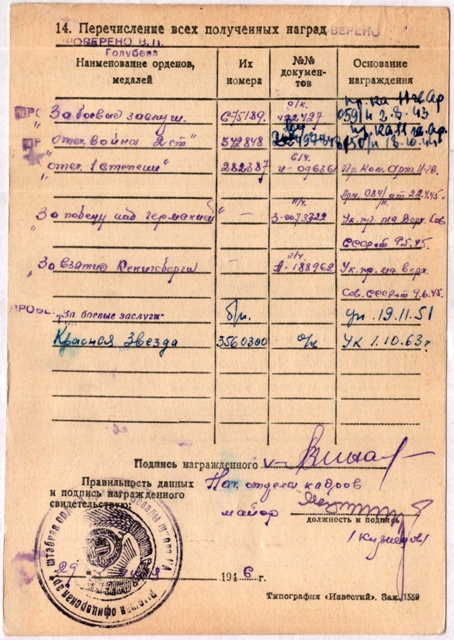 14. Перечисление всех полученных наград ВЕРЕНО
РОВЕРЕНО В. П.
Голубева
Наименование орденов, медалей
Их номера
№№ документов
Основание награждения
За боевые заслуг. 675189. о/к. 059/н 2.8.43
Отеч. Война 2 ст" 342848
"Отеч. 1 степени" 282387 в/ч.
Арм. 084/н от 22.4.45.
"За победу над Германией" — З-0073722 Ук. пр. на Верх. Сов.
СССР от 9.5.45.
"За взятие Кенигсберга — А-188962 Ук. пр. на верх.
Сов. СССР от 9.6.45.
"За боевые заслуги" б/н. ук. 19.11.51
Красная Звезда 3560300 о/к Ук 1.10.63г
Подпись награжденного
Правильность данных Нач. отдела кадров
и подпись награжденного
свидетельствую: майор
должность и подпись
(Кузнецов)
29 194 6 г.
Типография «Известий». Зак. 1559